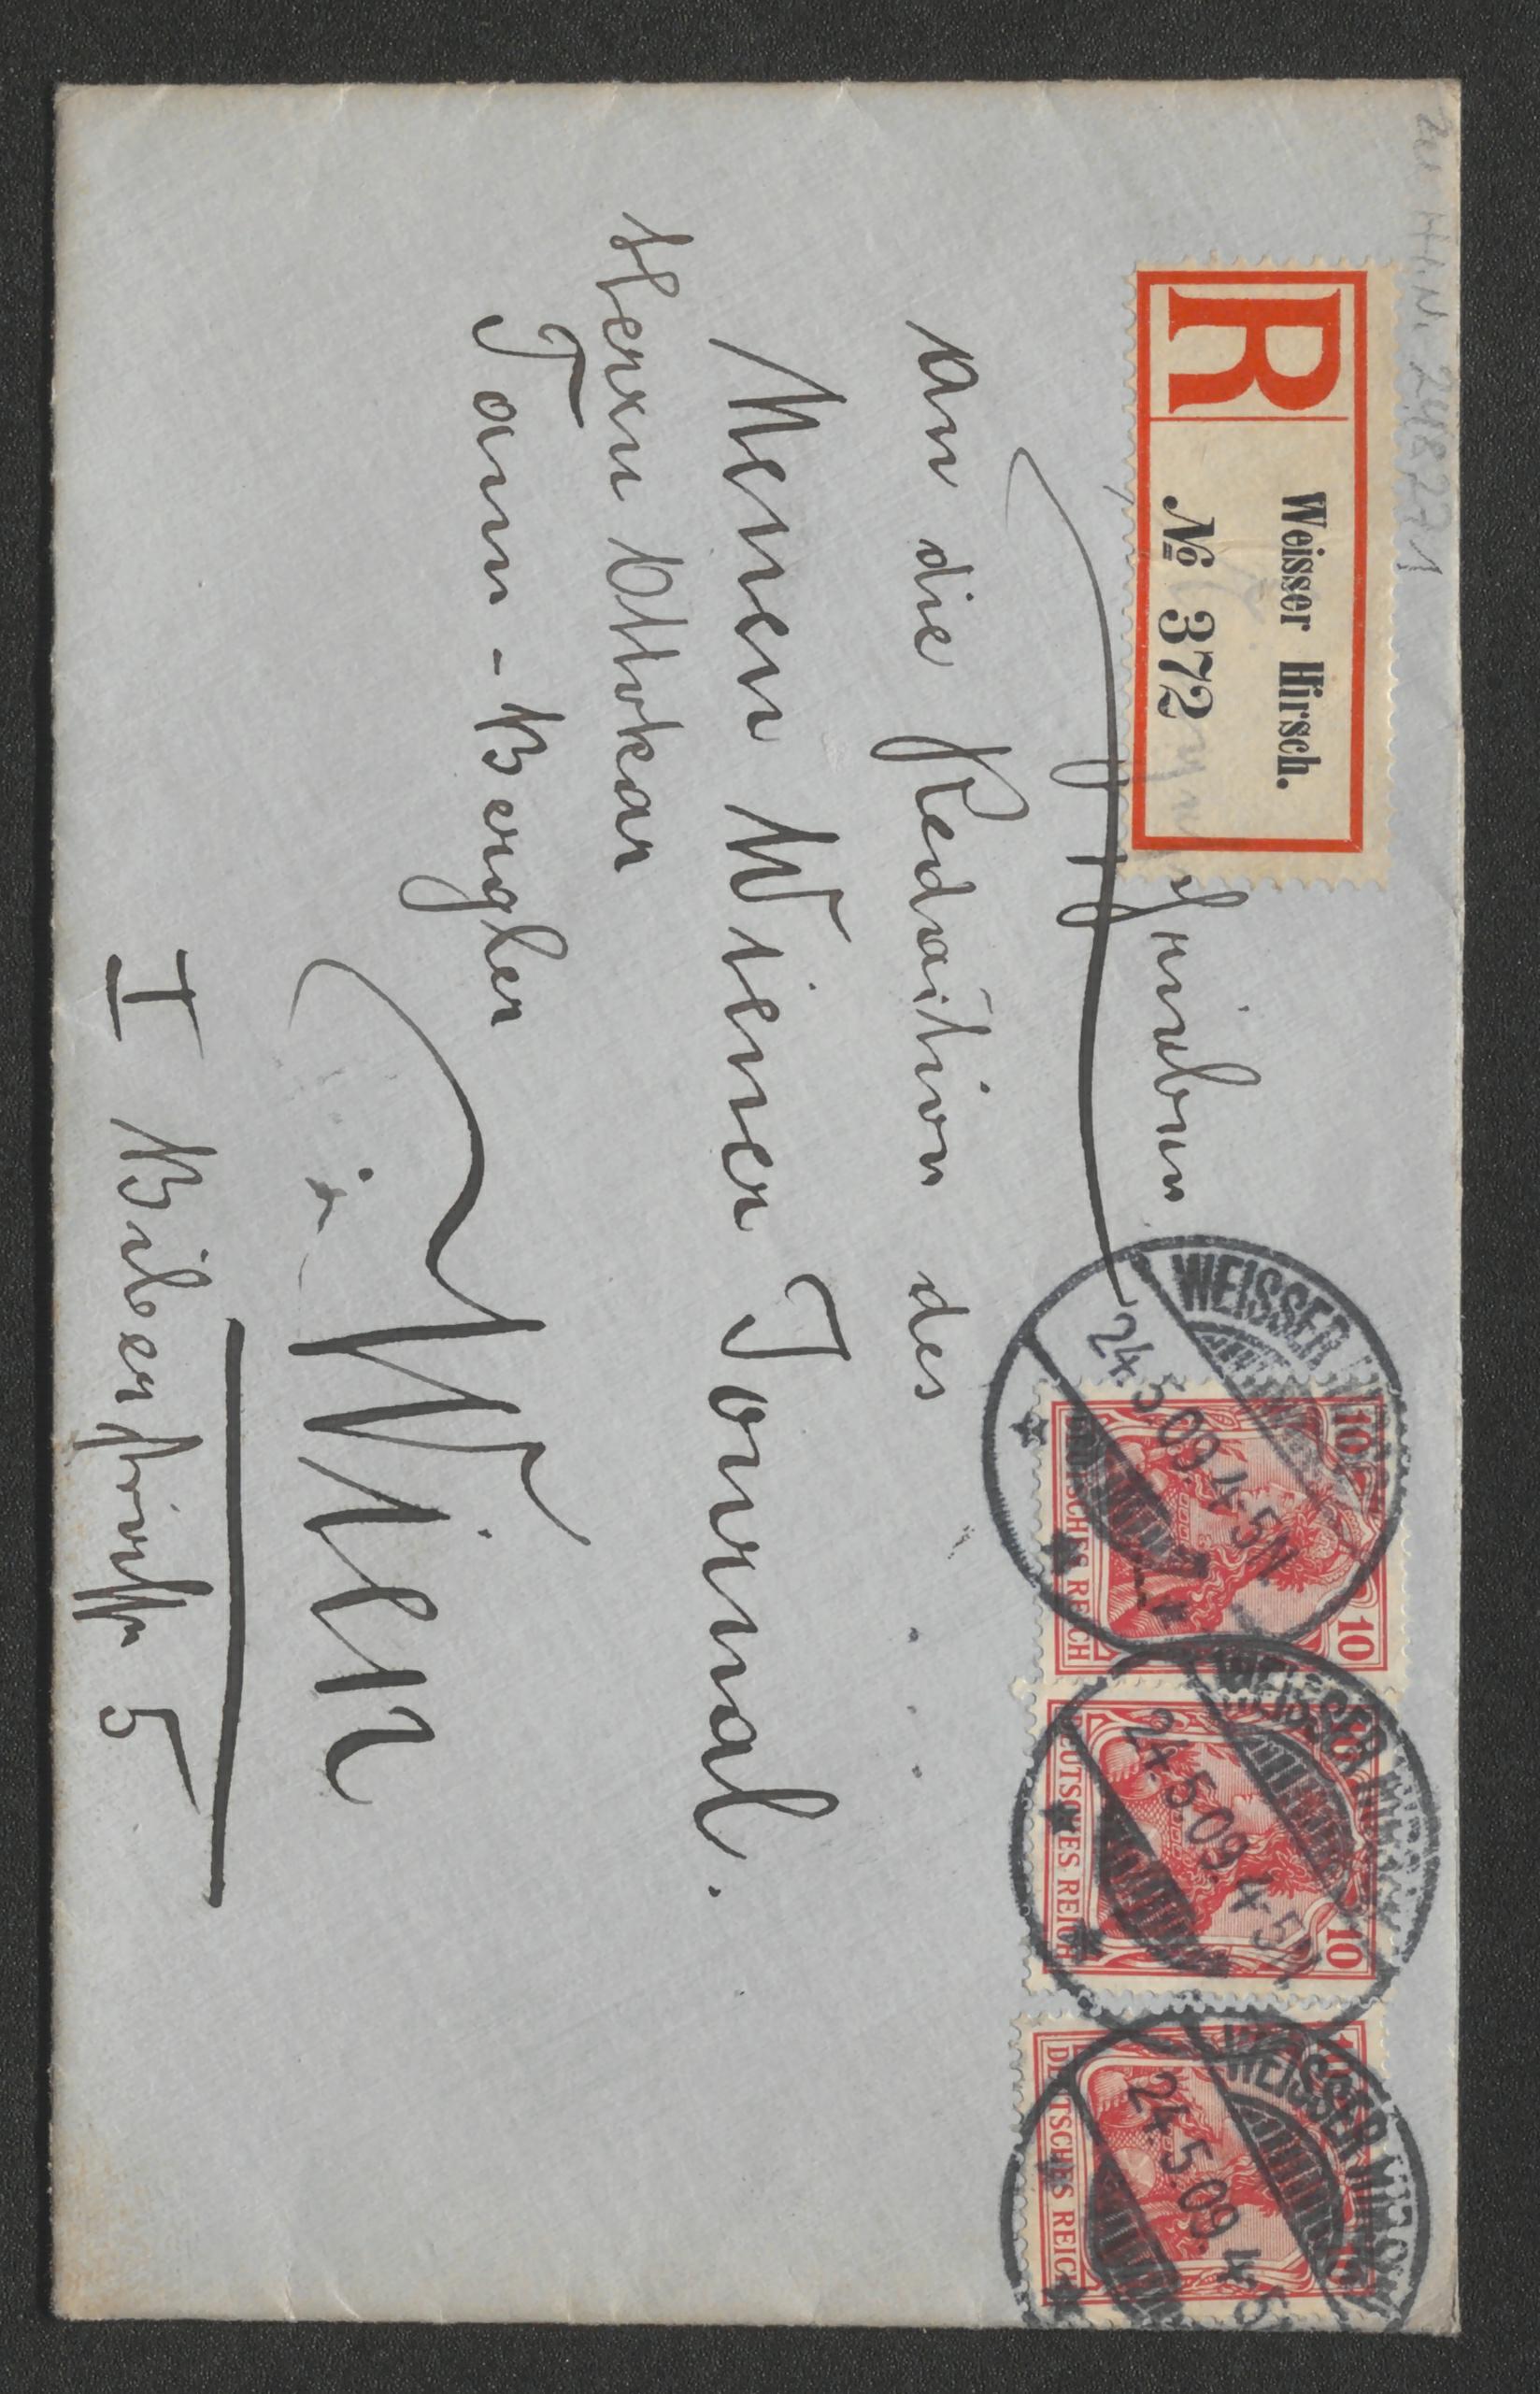 zu H.I.N. 248271
R Weisser Hirsch.
№ 372
Eingeschrieben
WEISSER HIRSCH
24.5.09. 4-5N.
10 10
DEUTSCHES REICH
WEISSER HIRSCH
24.5.09. 4-5N.
10
DEUTSCHES REICH
WEISSER HIRSCH
24.5.09. 4-5
10
DEUTSCHES REICH
An die Redaction des
Neuen Wiener Journal.
Herrn Ottokar
Tann-Bergler
in
Wien
I Biberstraße 5